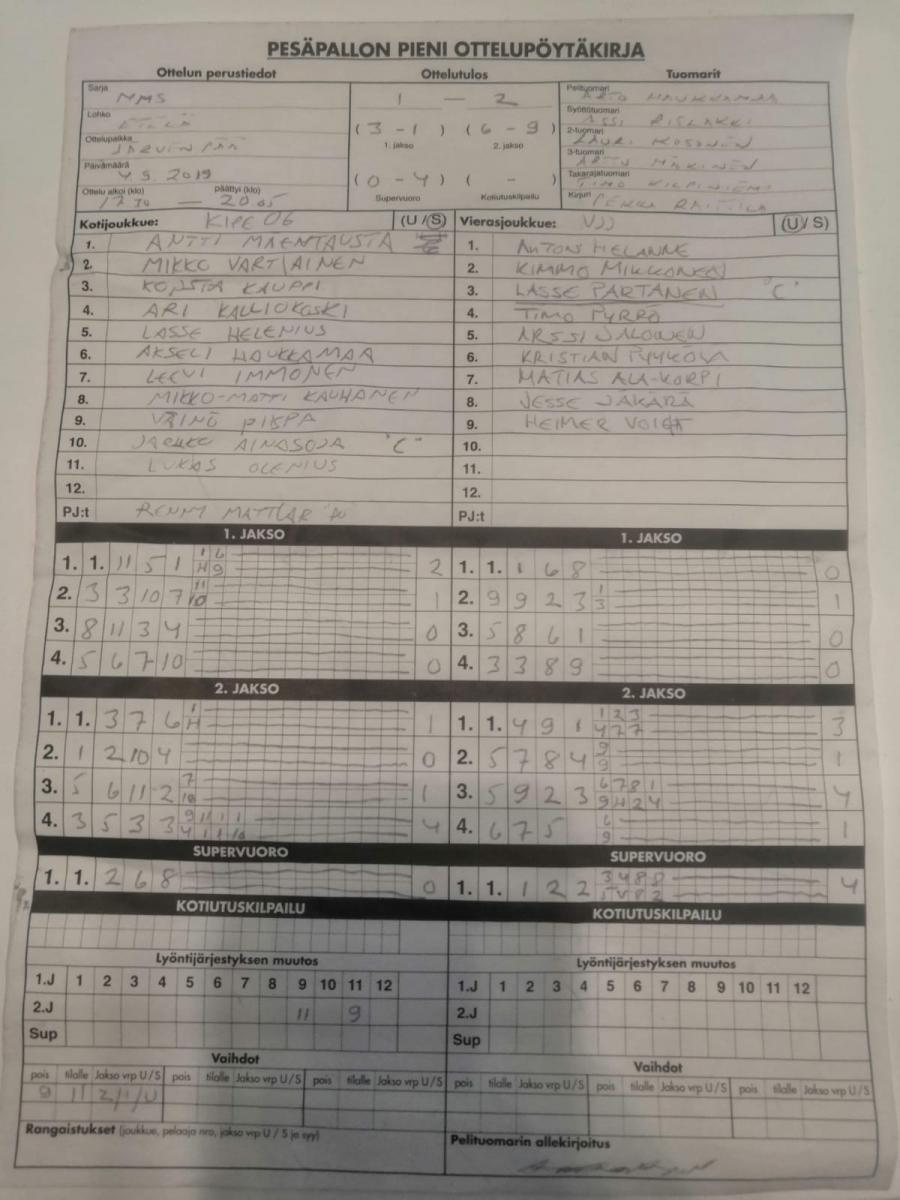 PESÄPALLON PIENI OTTELUPÖYTÄKIRJA
Ottelun perustiedot Ottelutulos Tuomarit
Sarja MMS
Lohko ETELÄ
Ottelupaikka JÄRVENPÄÄ
Päivämäärä 4.9.2019
Ottelu alkoi (klo) päättyi (klo)
1730 — 2005
1 — 2
(3 - 1) (6 - 9)
1. jakso 2. jakso
(0 - 4) ( - )
Supervuoro Kotiutuskilpailu
Pelituomari HAUKKAMAA
Syöttötuomari ASSI RISLAKKI
2-tuomari LAURI KOSONEN
3-tuomari ARTTU MÄKINEN
Takarajatuomari TIMO KILPINIEMI
Kirjuri PEKKA RAITTILA
Kotijoukkue: KIPE 06 (U/S) Vierasjoukkue: VJJ (U/S)
1. ANTTI MAENTAUSTA 1. ANTON HELANNE
2. MIKKO VARTIAINEN 2. KIMMO MIKKONEN
3. KONSTA KAUPPI 3. LASSE PARTANEN "C"
4. ARI KALLIOKOSKI 4. TIMO PYRRÖ
5. LASSE HELENIUS 5. JALONEN
6. AKSELI HAUKKAMAA 6. KRISTIAN PYYKÖLÄ
7. LEEVI IMMONEN 7. MATIAS ALA-KORPI
8. MIKKO-MATTI KAUHANEN 8. JESSE JAKARÄ
9. VÄINÖ PIEPA 9. HEIMER VOIGT
10. JARKKO AINASOJA "C" 10.
11. LUKAS OLENIUS 11.
12. 12.
PJ:t REMMY MATTLAR PJ:t
1. JAKSO 1. JAKSO
1. 1. 11 5 1 1 6 2 1. 1. 1 6 8 0
H 9
2. 3 3 10 7 11 1 2. 9 9 2 3 1 1
10 3
3. 8 11 3 4 0 3. 5 8 6 1 0
4. 5 6 7 10 0 4. 3 3 8 9 0
2. JAKSO 2. JAKSO
1. 1. 3 7 6 1 1 1. 1. 4 9 1 1 2 3 3
H 4 7 7
2. 1 2 10 4 0 2. 5 7 8 4 9 1
9
3. 5 6 11 2 7 1 3. 5 9 2 3 6 7 8 1 4
10 9 4 2 4
4. 3 5 3 3 9 11 1 1 4 4. 6 7 5 6 1
4 1 1 10 9
SUPERVUORO SUPERVUORO
1. 1. 2 6 8 0 1. 1. 1 2 2 3 4 8 8 4
5 V 8 2
KOTIUTUSKILPAILU KOTIUTUSKILPAILU
Lyöntijärjestyksen muutos Lyöntijärjestyksen muutos
1.J 1 2 3 4 5 6 7 8 9 10 11 12 1.J 1 2 3 4 5 6 7 8 9 10 11 12
2.J 11 9 2.J
Sup Sup
Vaihdot Vaihdot
pois tilalle Jakso vrp U/S pois tilalle Jakso vrp U/S pois tilalle Jakso vrp U/S pois tilalle Jakso vrp U/S pois tilalle Jakso vrp U/S pois tilalle Jakso vrp U/S
9 11 2/1/U
Rangaistukset (joukkue, pelaaja nro, jakso vrp U / S ja syy) Pelituomarin allekirjoitus